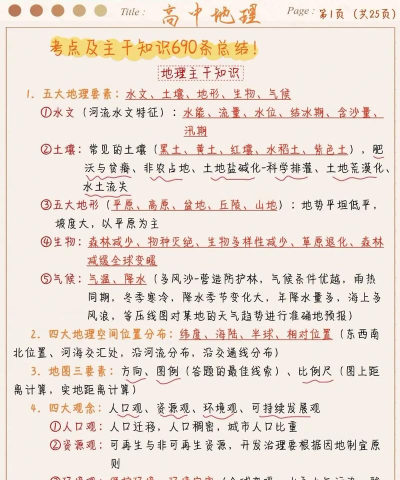 Title: 高中地理 Page: 第1页 (共25页)
考点及主干知识690条总结!
地理主干知识
1. 五大地理要素：水文、土壤、地形、生物、气候
①水文（河流水文特征）：水能、流量、水位、结冰期、含沙量、
汛期
②土壤：常见的土壤（黑土、黄土、红壤、水稻土、紫色土），肥
沃与贫瘠、非农占地、土地盐碱化-科学排灌、土地荒漠化、
水土流失
③五大地形（平原、高原、盆地、丘陵、山地）：地势平坦低平，
坡度大，以平原为主
④生物：森林减少、物种灭绝、生物多样性减少、草原退化、森林
减缓全球变暖
⑤气候：气温、降水（多风沙-营造防护林，气候条件优越，雨热
同期，冬季寒冷，降水季节变化大，年降水量多，海上多
风浪，等压线图对某地的天气趋势进行准确地预报）
2. 四大地理空间位置分布：纬度、海陆、半球、相对位置（东西南
北位置、河海交汇处，沿河流分布，沿交通线分布）
3. 地图三要素：方向、图例（答题的最佳线索）、比例尺（图上距
离计算，实地距离计算）
4. 四大观念：人口观、资源观、环境观、可持续发展观
①人口观：人口迁移，人口稠密，城市人口比重
②资源观：可再生与非可再生资源，开发治理要根据因地制宜原
则